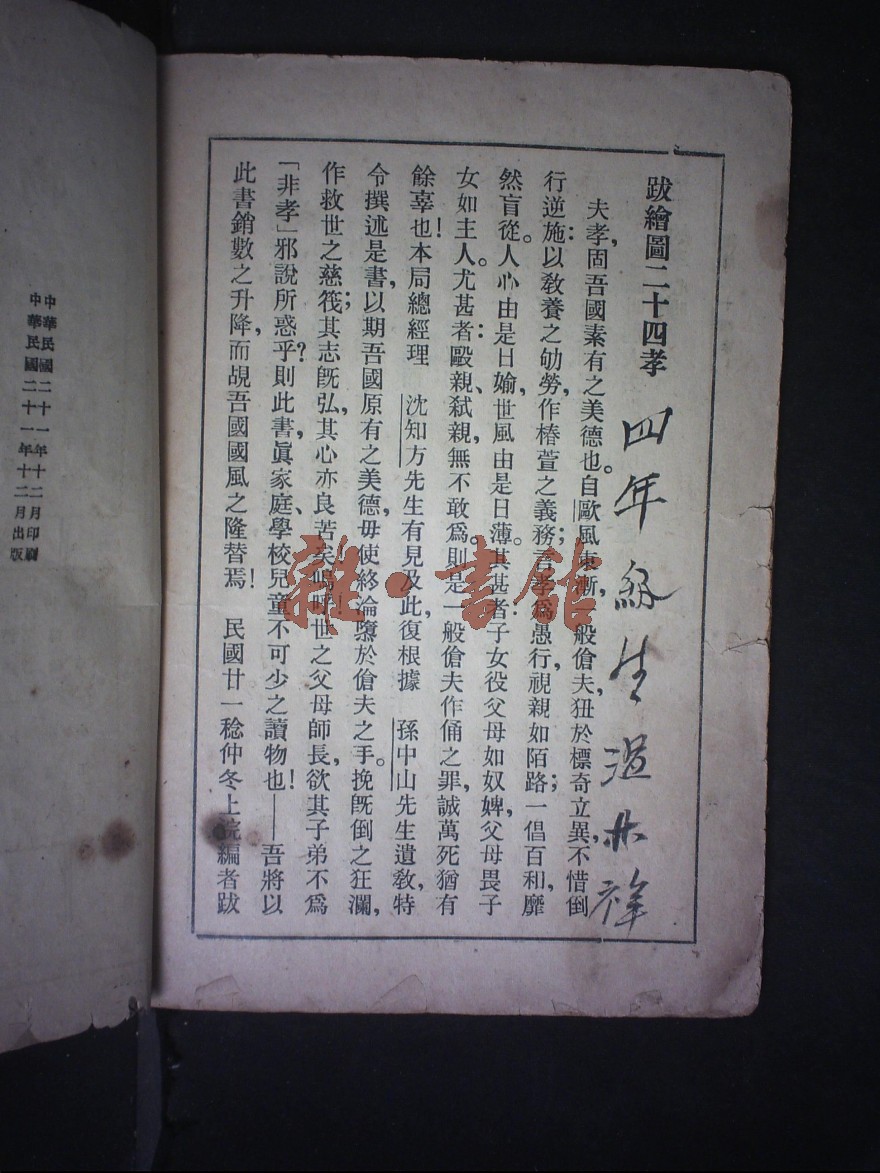 跋繪圖二十四孝
四年級生温亦祥
夫孝，固吾國素有之美德也。自歐風東漸，一般傖夫，狃於標奇立異，不惜倒
行逆施：以敎養之劬勞，作椿萱之義務；言孝爲愚行，視親如陌路；一倡百和，靡
然盲從。人心由是日媮，世風由是日薄。其甚者：子女役父母如奴婢，父母畏子
女如主人。尤甚者：毆親、弒親，無不敢爲。則是一般傖夫作俑之罪，誠萬死猶有
餘辜也！本局總經理　沈知方先生有見及此，復根據　孫中山先生遺敎，特
令撰述是書，以期吾國原有之美德，毋使終淪墮於傖夫之手。挽旣倒之狂瀾，
作救世之慈筏；其志旣弘，其心亦良苦矣！嗚呼！世之父母師長，欲其子弟不爲
「非孝」邪說所惑乎？則此書，眞家庭、學校兒童不可少之讀物也！——吾將以
此書銷數之升降，而覘吾國國風之隆替焉！　民國廿一稔仲冬上浣編者跋
中華民國二十一年十二月印刷
中華民國二十一年十二月出版
雜·書館